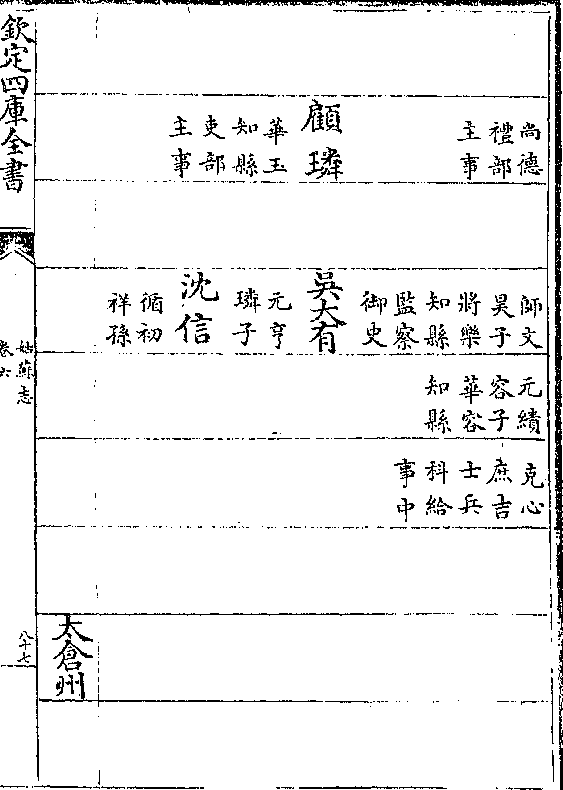 尚德
禮部
主事
顧璘
華玉
知縣
吏部
主事
師文
昊子
將樂
知縣
監察
御史
吳大有
元亨
璘子
沈信
循初
祥孫
元績
容子
華容
知縣
克心
庶吉
士兵
科給
事中
太倉州
欽定四庫全書
姑蘇志
卷六
八十七